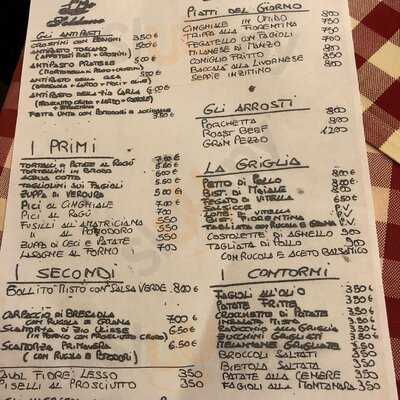 Soldano
Gli Antipasti
Crostini con Funghi 350 €
Antipasto Toscano
Antipasto Pratese 500 €
Antipasto della Casa
Antipasto della Zia Carla 600 €
I Primi
Tortelli di Patate al Ragù 700 €
Tortellini in Brodo
Acqua Cotta
Tagliolini sui Fagioli
Zuppa di Verdura
Pici al Cinghiale 700
Pici al Ragù 700
Fusilli all'Amatriciana 550
" al Pomodoro 550
Zuppa di Ceci e Patate 550
Lasagne al Forno 700
I Secondi
Bollito Misto con Salsa Verde 800 €
Carpaccio di Bresaola
con Rucola e Grana 700 €
Scamorza di Zio Ulisse 650 €
(in Forno con Prosciutto Crudo)
Scamorza Primavera 650 €
(con Rucola e Pomodori)
Caval Fiore Lesso 350
Piselli al Prosciutto 350
Piatti del Giorno
Cinghiale in Umido 800
Trippa alla Fiorentina 750
Fegatello con Fagioli 750
Milanese di Manzo 800
Coniglio Fritto 850
Baccalà alla Livornese 800
Seppie in Zimino 800
Gli Arrosti
Porchetta 800
Roast Beef 800
Gran Pezzo 1200
La Griglia
Petto di Pollo 800 €
Bist. di Maiale 800 €
Fegato di Vitella 650 €
Salsicce
Lomb. di Vitella P.V.
Bist. Fiorentina P.V.
Tagliata con Rucola e Grana P.V.
Costolette di Agnello 900
Tagliata di Pollo 900
con Rucola e Aceto Balsamico
I Contorni
Fagioli all'Olio 350 €
Patate Fritte 350 €
Crocchette di Patate 350 €
Insalata Mista 350 €
Radicchio alla Griglia 350 €
Zucchini Grigliati 350 €
Melanzane Grigliate 350 €
Broccoli Saltati 350
Bietola Saltata 350
Patate alla Cenere 350
Fagioli alla Montanara 350